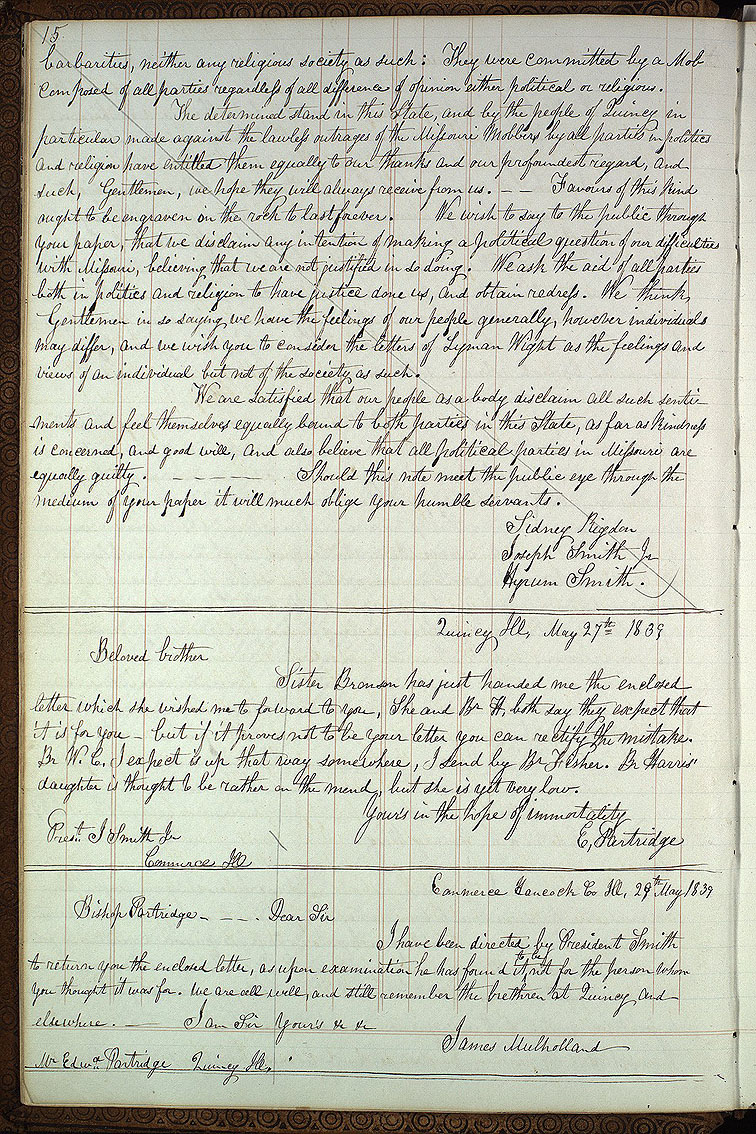 15.
barbarities, neither any religious society as such: They were committed by a Mob
composed of all parties regardless of all difference of opinion either political or religious.
The determined stand in this State, and by the people of Quincy in
particular made against the lawless outrages of the Missouri Mobbers by all parties in politics
and religion have entitled them equally to our thanks and our profoundest regard, and
such, Gentlemen, we hope they will always receive from us. — — Favours of this kind
ought to be engraven on the rock to last forever. We wish to say to the public through
your paper, that we disclaim any intention of making a political question of our difficulties
with Missouri, believing that we are not justified in so doing. We ask the aid of all parties
both in politics and religion to have justice done us, and obtain redress. We think,
Gentlemen in so saying we have the feelings of our people generally, however individuals
may differ, and we wish you to consider the letters of Lyman Wight as the feelings and
views of an individual but not of the society as such.
We are satisfied that our people as a body disclaim all such senti-
ments and feel themselves equally bound to both parties in this State, as far as kindness
is concerned, and good will, and also believe that all political parties in Missouri are
equally guilty. — — — — Should this note meet the public eye through the
medium of your paper it will much oblige your humble servants.
Sidney Rigdon
Joseph Smith Jr
Hyrum Smith.
Quincy Ill, May 27th 1839
Beloved brother
Sister Bronson has just handed me the enclosed
letter which she wished me to forward to you, She and Br H, both say they expect that
it is for you — but if it proves not to be your letter you can rectify the mistake.
Br W. C. I expect is up that way somewhere, I send by Br Fisher. Br Harris'
daughter is thought to be rather on the mend, but she is yet very low.
Yours in the hope of immortality
E, Partridge
Prest. J Smith Jr
Commerce Ill
Commerce Hancock Co Ill, 29th May 1839
Bishop Partridge — — — . Dear Sir
I have been directed by President Smith
to return you the enclosed letter, as upon examination he has found it, to be not for the person whom
you thought it was for. We are all well, and still remember the brethren at Quincy and
elsewhere. — I am Sir Your's &c &c
James Mulholland
Mr Edwd. Partridge Quincy Ill.